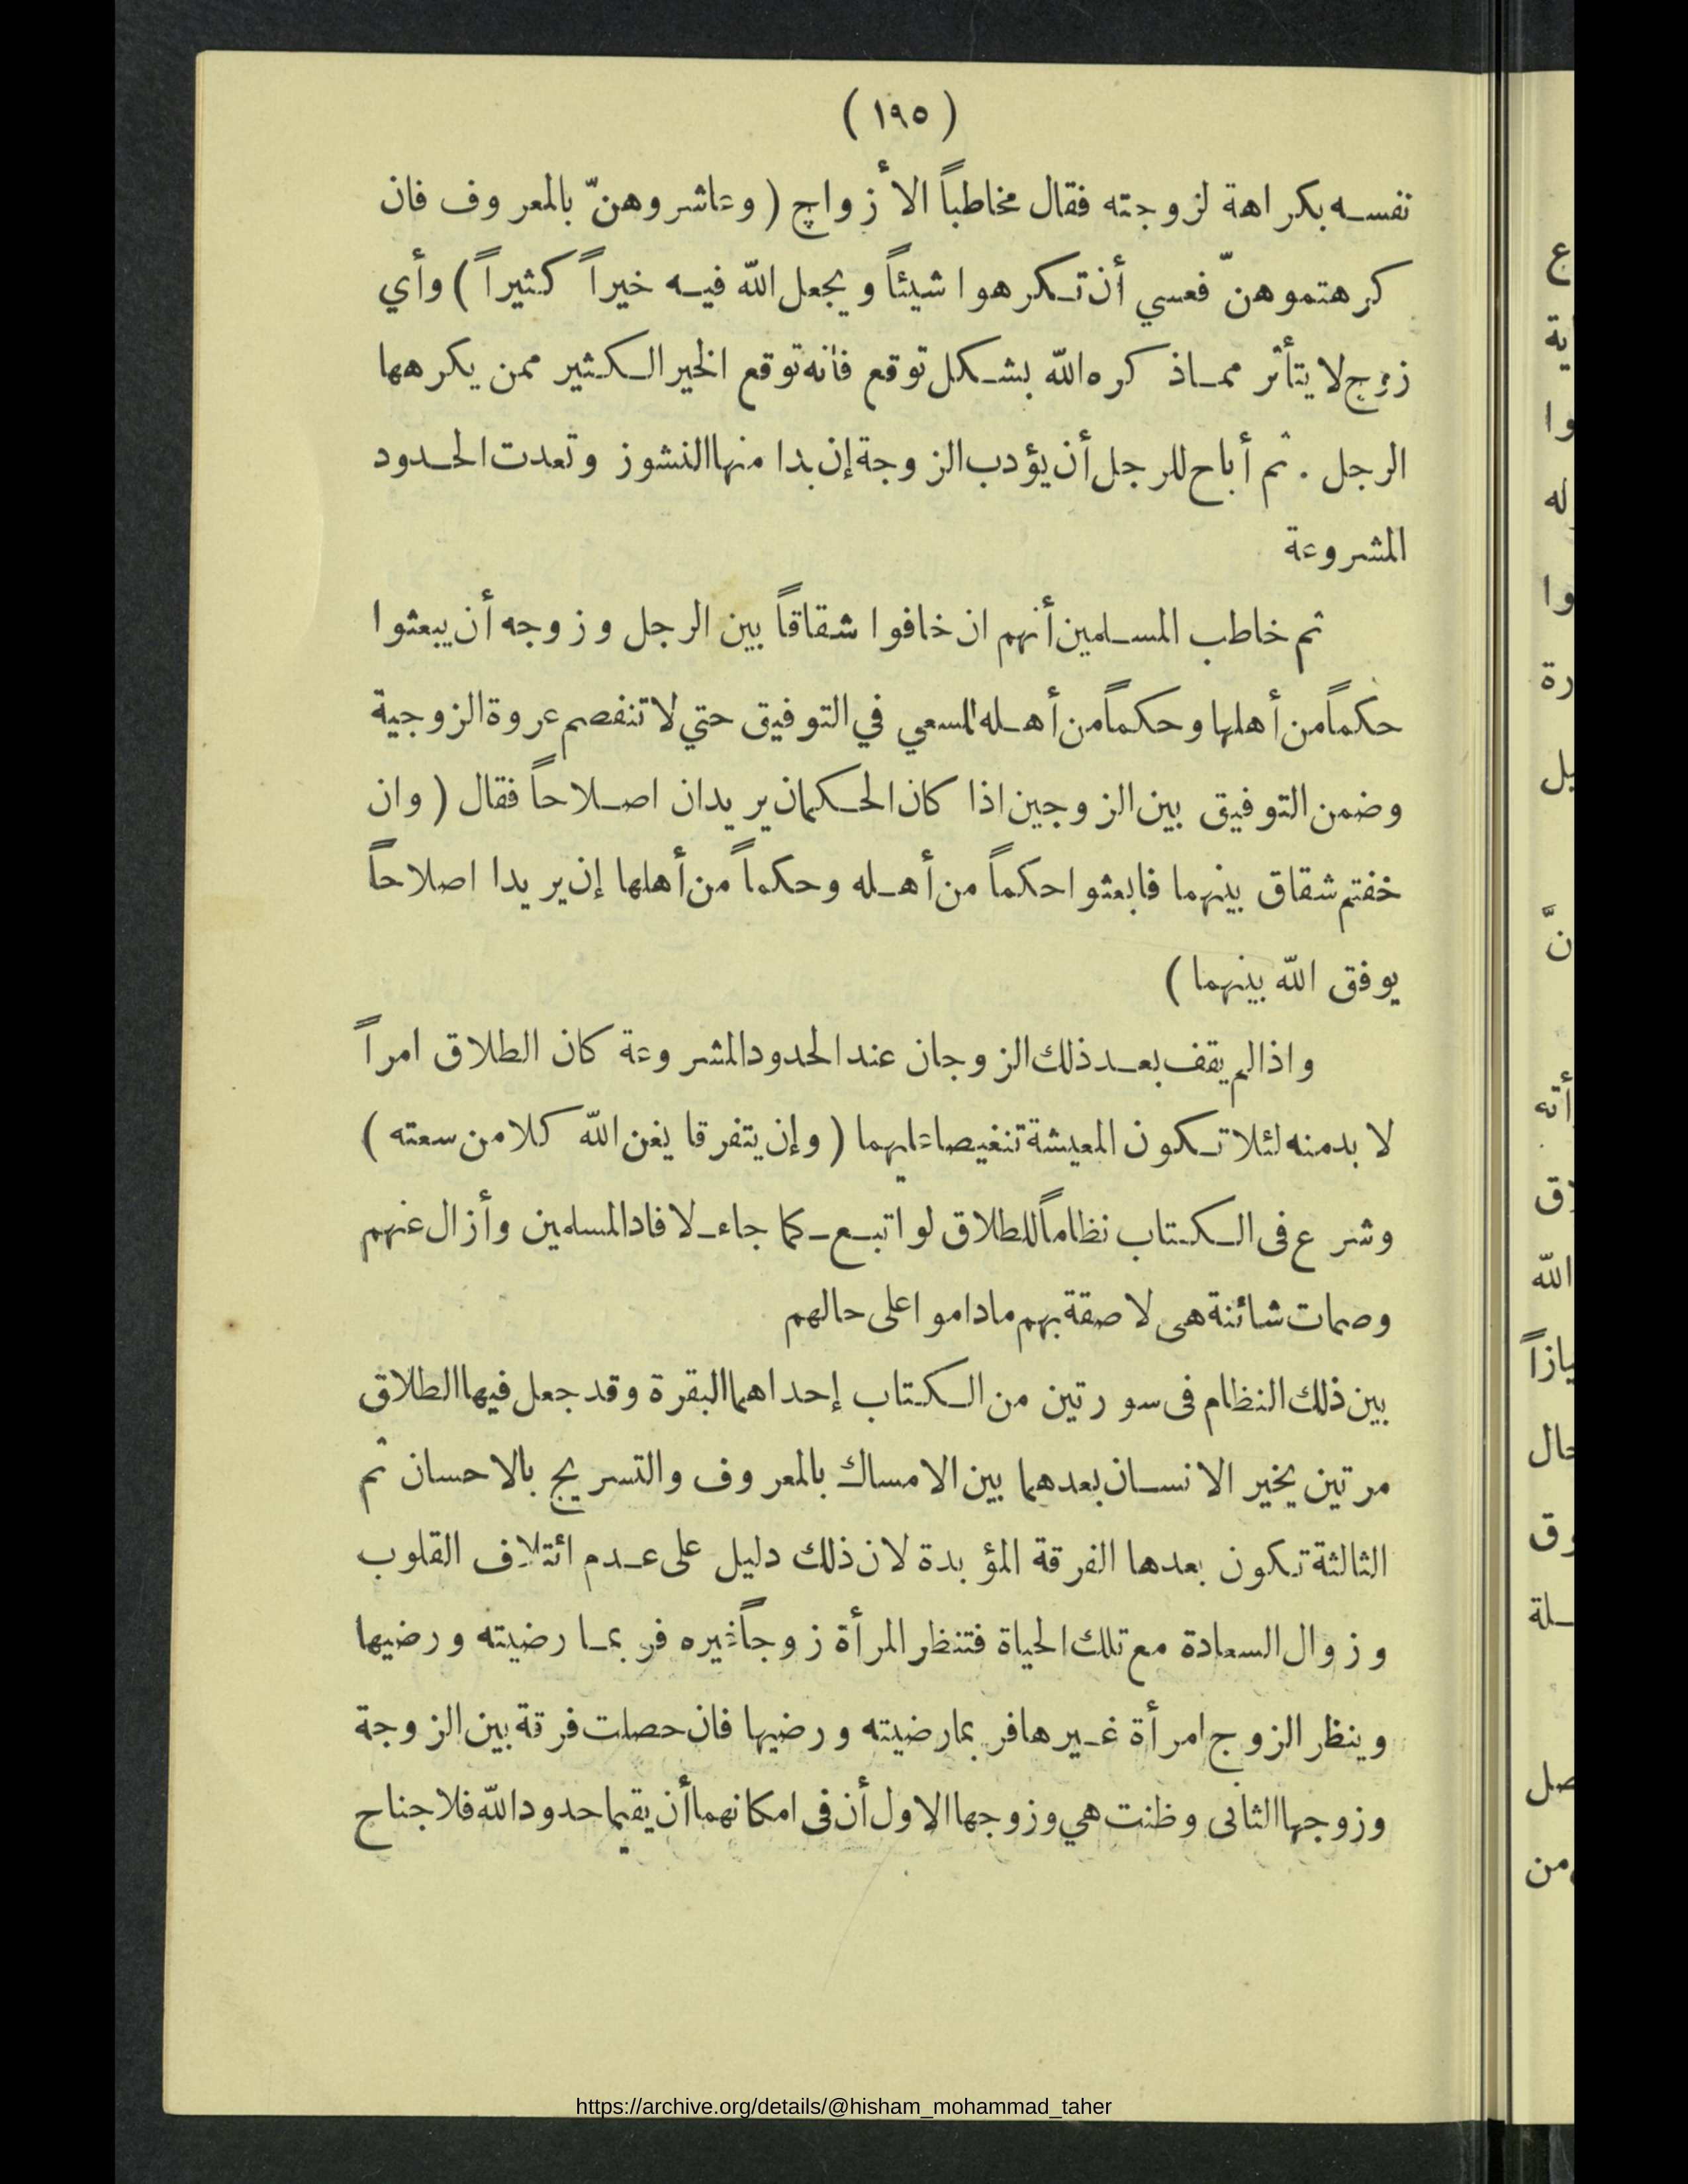 ( ١٩٥ )
نفسه بكراهة لزوجته فقال مخاطباً الأزواج ( وعاشروهنّ بالمعروف فان
كرهتموهنّ فعسي أن تكرهوا شيئاً ويجعل الله فيه خيراً كثيراً ) وأي
زوج لا يتأثر مماذكره الله بشكل توقع فانه توقع الخير الكثير ممن يكرهها
الرجل . ثم أباح للرجل أن يؤدب الزوجة إن بدا منها النشوز وتعدت الحدود
المشروعة
ثم خاطب المسلمين أنهم ان خافوا شقاقاً بين الرجل وزوجه أن يبعثوا
حكماً من أهلها وحكماً من أهله للسعي في التوفيق حتي لا تنفصم عروة الزوجية
وضمن التوفيق بين الزوجين اذا كان الحكمان يريدان اصلاحاً فقال ( وان
خفتم شقاق بينهما فابعثوا حكماً من أهله وحكماً من أهلها إن يريدا اصلاحاً
يوفق الله بينهما )
واذا لم يقف بعد ذلك الزوجان عند الحدود المشروعة كان الطلاق امراً
لا بد منه لئلا تكون المعيشة تنغيصا عليهما ( وإن يتفرقا يغن الله كلا من سعته )
وشرع فى الكتاب نظاماً للطلاق لو اتبع ـ كما جاء ـ لافاد المسلمين وأزال عنهم
وصمات شائنة هى لاصقة بهم ماداموا على حالهم
بين ذلك النظام فى سورتين من الكتاب إحداهما البقرة وقد جعل فيها الطلاق
مرتين يخير الانسان بعدهما بين الامساك بالمعروف والتسريح بالاحسان ثم
الثالثة تكون بعدها الفرقة المؤبدة لان ذلك دليل على عدم ائتلاف القلوب
وزوال السعادة مع تلك الحياة فتنظر المرأة زوجاً غيره فربما رضيته ورضيها
وينظر الزوج امرأة غيرها فربما رضيته ورضيها فان حصلت فرقة بين الزوجة
وزوجها الثانى وظنت هي وزوجها الاول أن فى امكانهما أن يقيما حدود الله فلا جناح
https://archive.org/details/@hisham_mohammad_taher